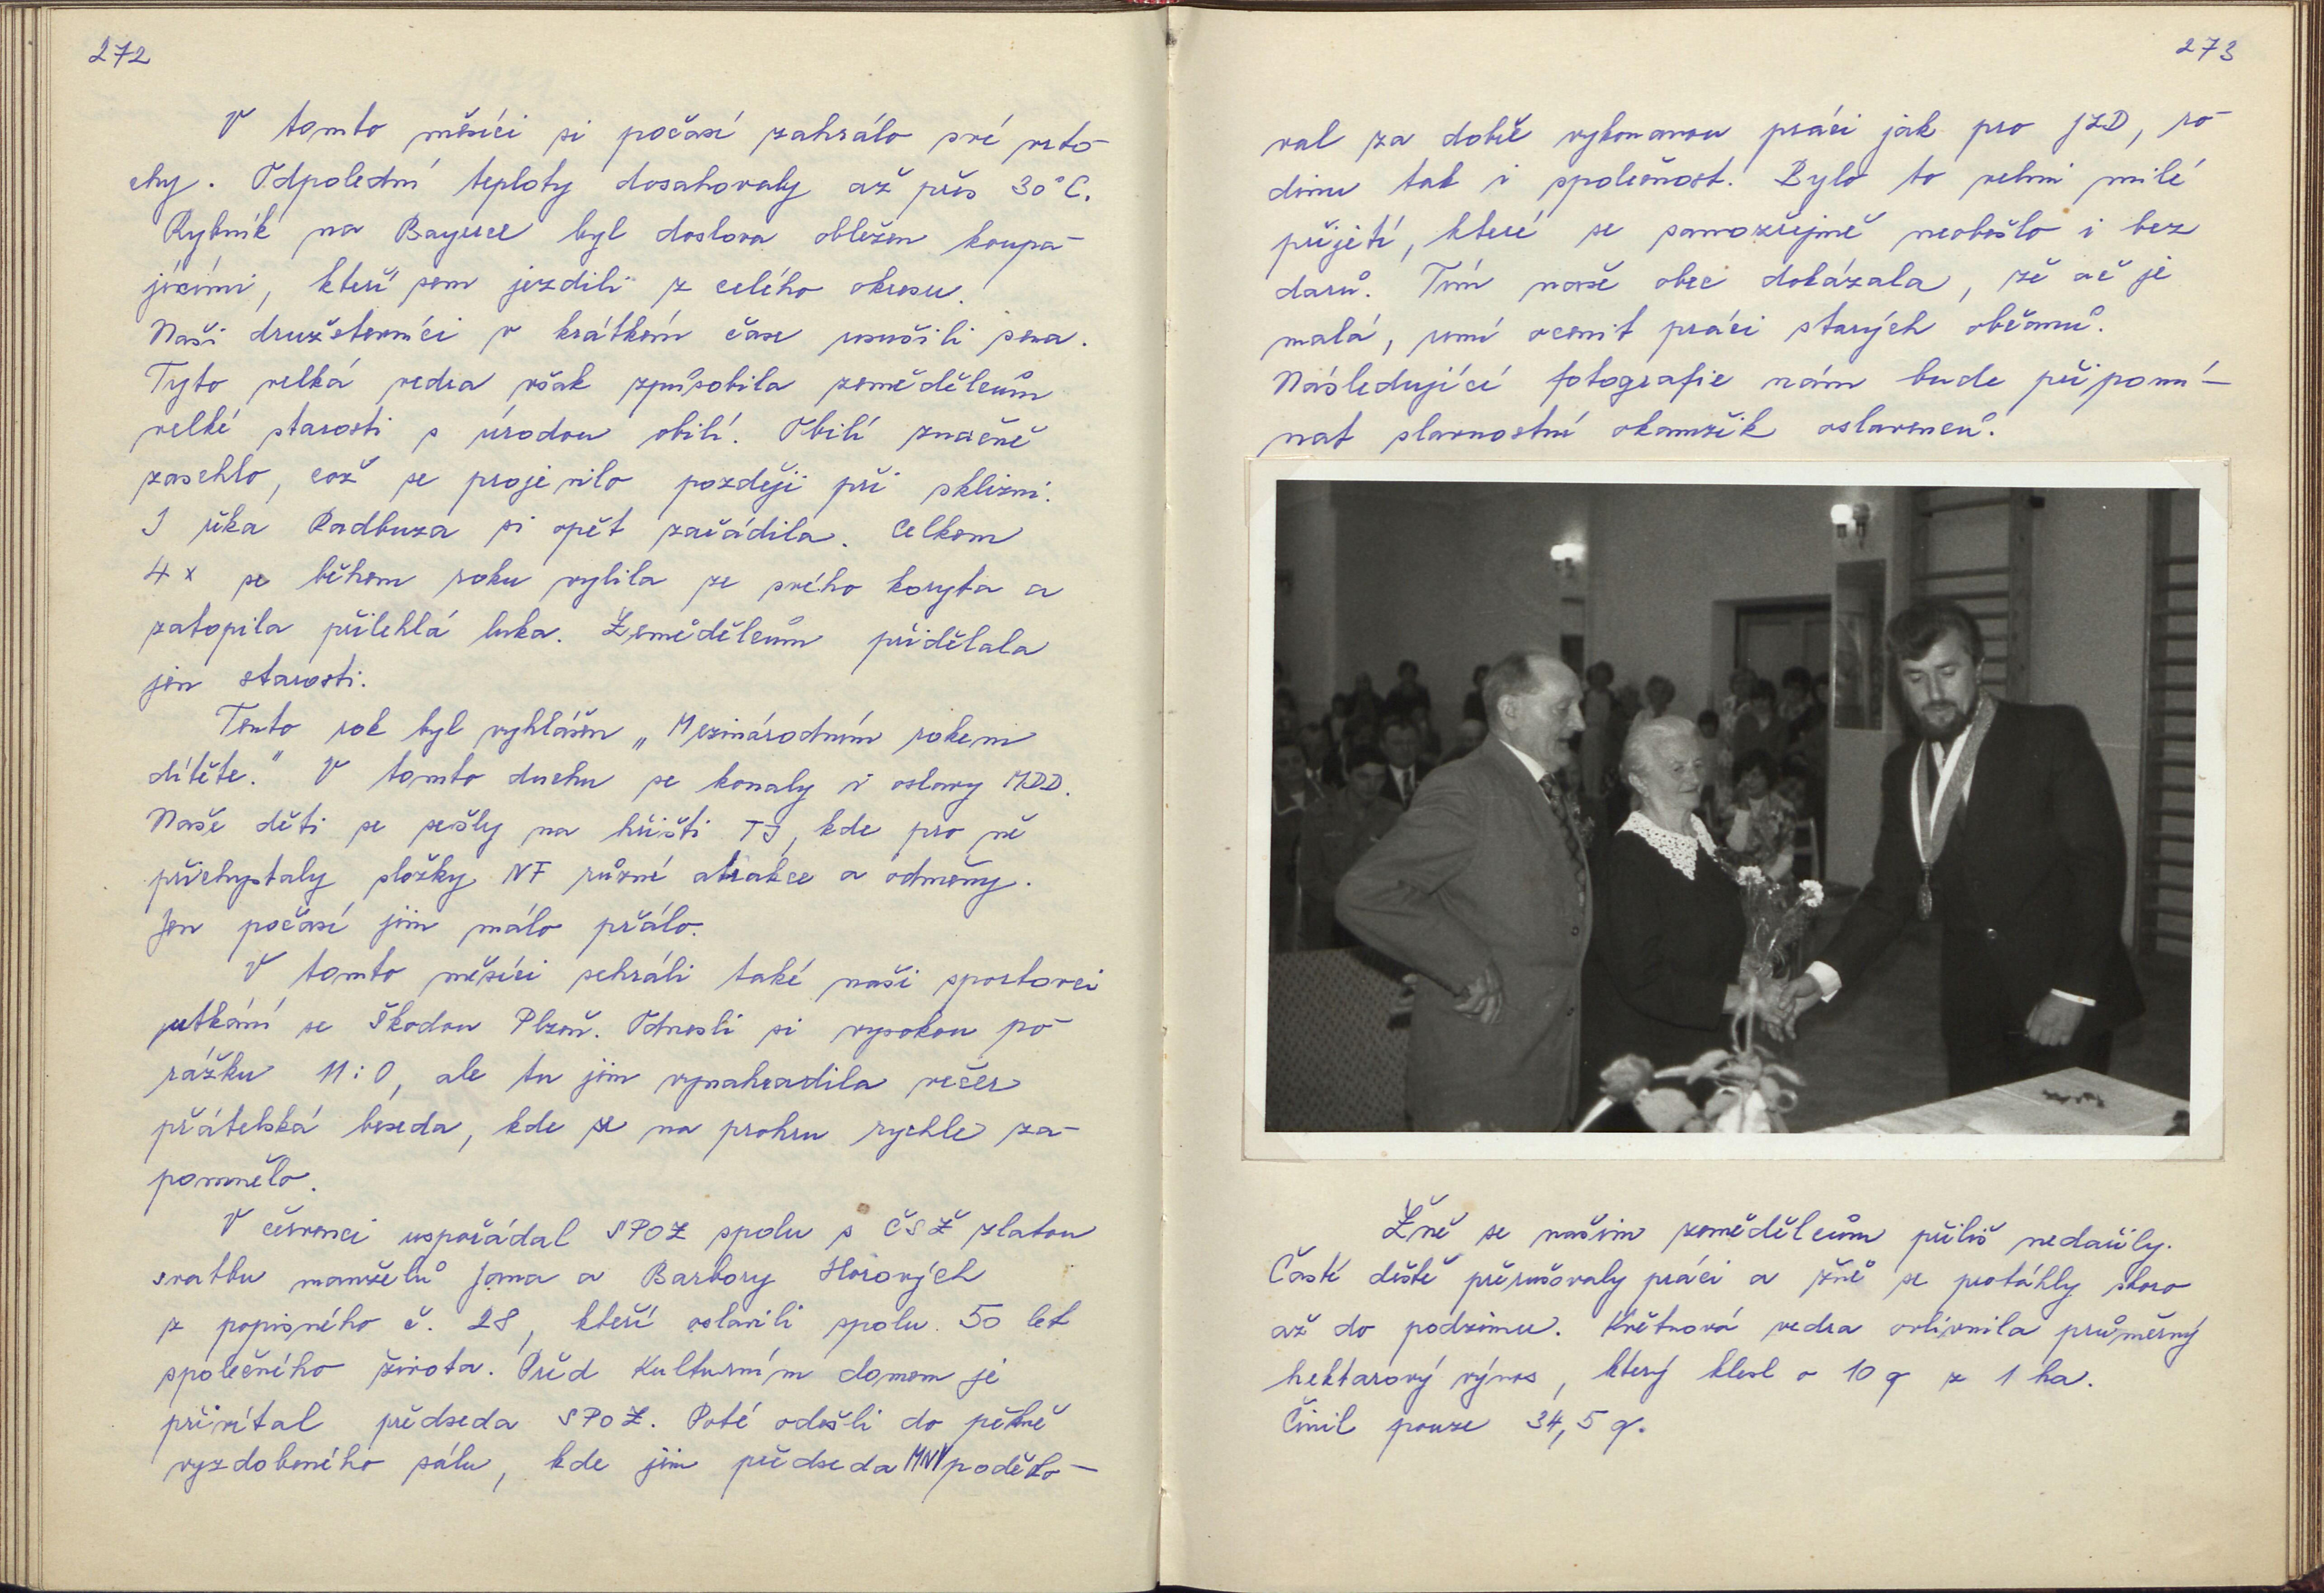 272
V tomto měsíci si počasí zahrálo své vrto-
chy. Odpolední teploty dosahovaly až přes 30°C.
Rybník na Bayerce byl doslova obležen koupa-
jícími, kteří sem jezdili z celého okresu.
Naši družstevníci v krátkém čase usušili sena.
Tyto velká vedra však způsobila zemědělcům
velké starosti s úrodou obilí. Obilí značně
zaschlo, což se projevilo později při sklizni.
I řeka Radbuza si opět zařádila. Celkem
4x se během roku vylila ze svého koryta a
zatopila přilehlá luka. Zemědělcům přidělala
jen starosti.
Tento rok byl vyhlášen „Mezinárodním rokem
dítěte." V tomto duchu se konaly i oslavy MDD.
Naše děti se sešly na hřišti TJ, kde pro ně
přichystaly složky NF různé atrakce a odměny.
Jen počasí jim málo přálo.
V tomto měsíci sehráli také naši sportovci
utkání se Škodou Plzeň. Odnesli si vysokou po-
rážku 11:0, ale tu jim vynahradila večer
přátelská beseda, kde se na prohru rychle za-
pomnělo.
V červenci uspořádal SPOZ spolu s ČSŽ zlatou
svatbu manželů Jana a Barbory Horových
z popisného č. 28, kteří oslavili spolu 50 let
společného života. Před Kulturním domem je
přivítal předseda SPOZ. Poté odešli do pěkně
vyzdobeného sálu, kde jim předseda MNV poděko-
273
val za dobře vykonanou práci jak pro JZD, ro-
dinu tak i společnost. Bylo to velmi milé
přijetí, které se samozřejmě neobešlo i bez
darů. Tím naše obec dokázala, že ač je
malá, umí ocenit práci starých občanů.
Následující fotografie nám bude připomí-
nat slavnostní okamžik oslavenců.
Žně se našim zemědělcům příliš nedařily.
Časté deště přerušovaly práci a žně se protáhly skoro
až do podzimu. Květnová vedra ovlivnila průměrný
hektarový výnos, který klesl o 10 q z 1 ha.
Činil pouze 34,5 q.